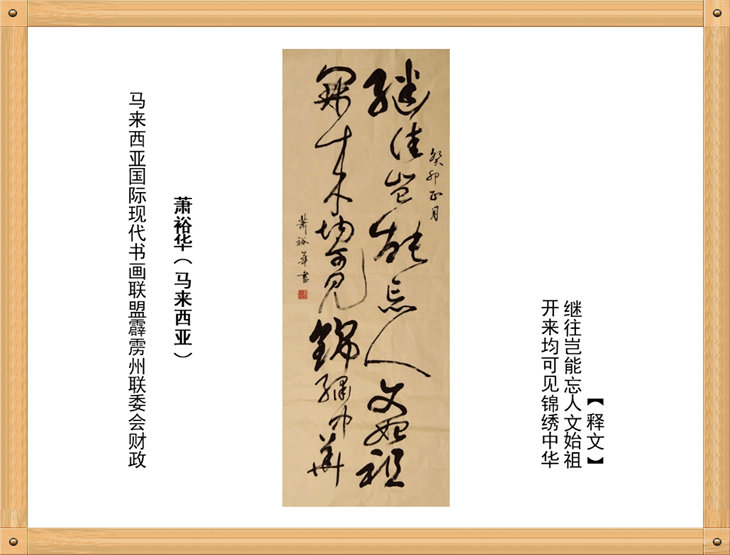 【释文】
继往岂能忘人文始祖
开来均可见锦绣中华
癸卯正月
繼往岂能忘人文始祖
開来均可见錦繡中華
蕭裕華書
萧裕华（马来西亚）
马来西亚国际现代书画联盟霹雳州联委会财政